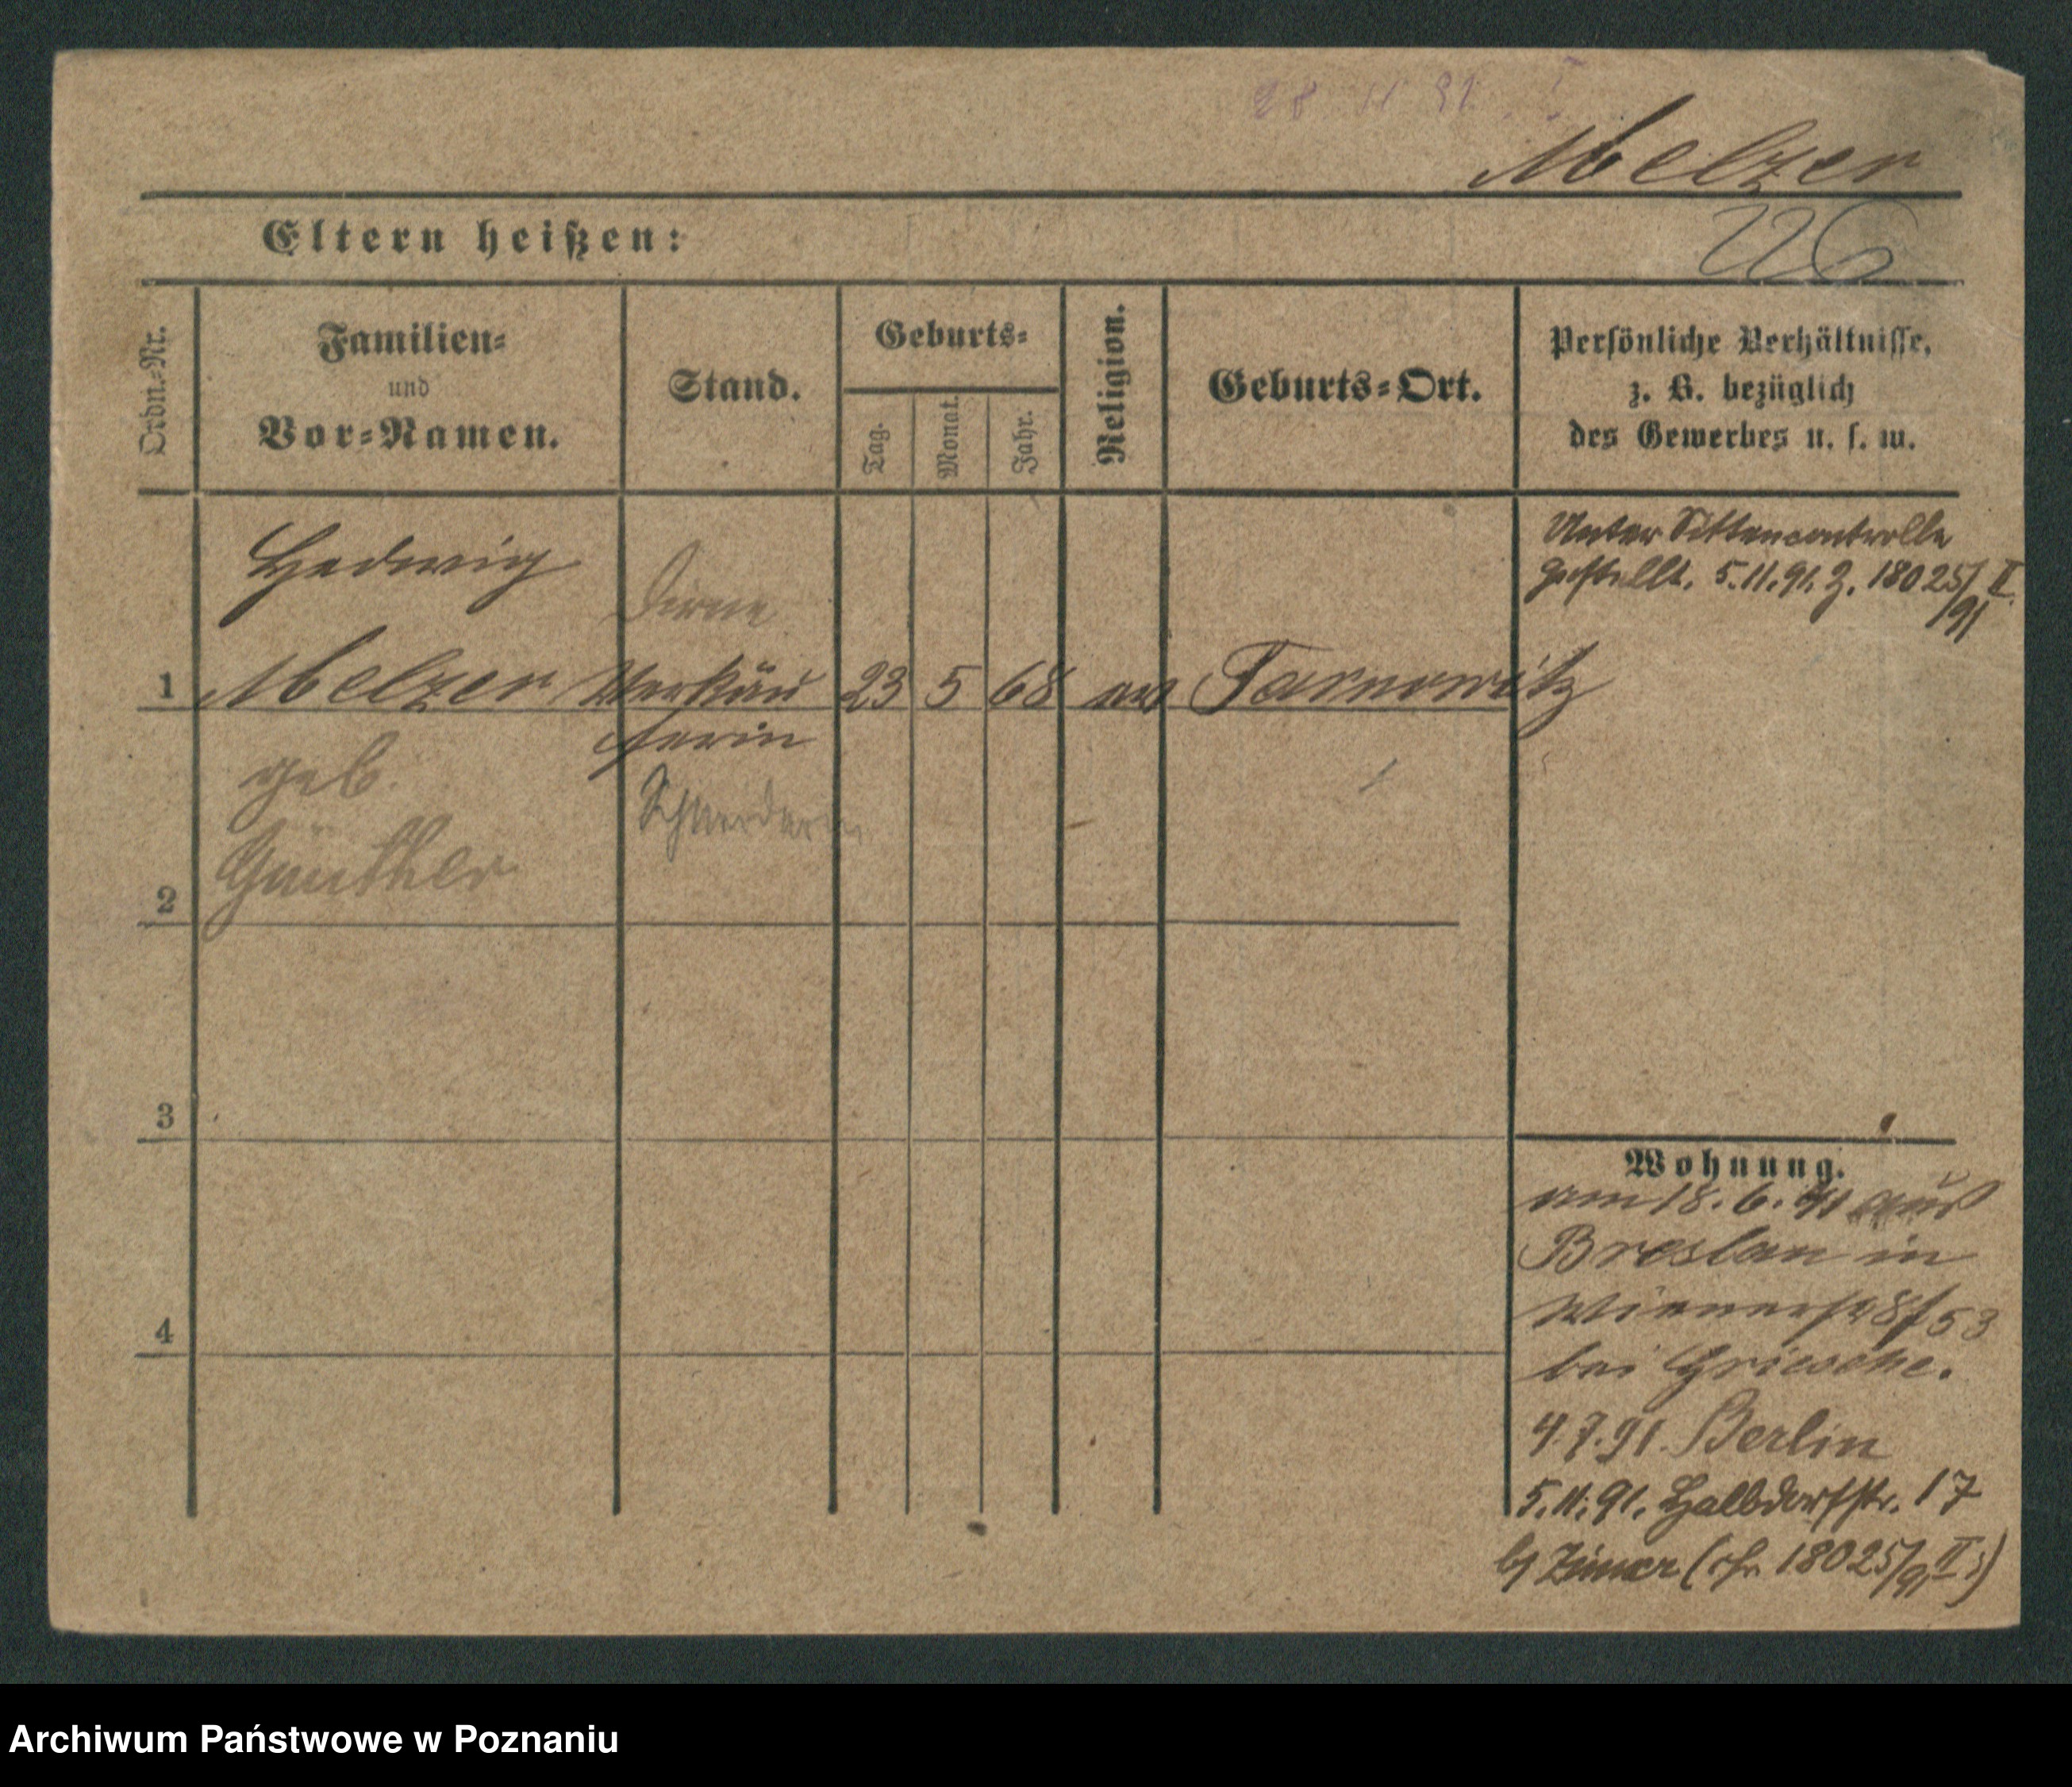 28. 11 91. I.
Melzer
Eltern heißen:
226
Ordn.-Nr.
Familien-
und
Vor-Namen.
Stand.
Geburts-
Tag.
Monat.
Jahr.
Religion.
Geburts-Ort.
Persönliche Verhältnisse,
z. B. bezüglich
des Gewerbes u. s. w.
Hedwig
Dirne
1 Melzer Verkäu 23 5 68 ev Tarnowitz
ferin
geb.
Schneiderin
Günther
2
3
4
Unter Sittencontrolle
gestellt. 5.11.91. J. 18025/91 II.
Wohnung.
am 18. 6. 91 aus
Breslau in
Wienerstr 8 f 53
bei Griesche.
4.7.91. Berlin
5.11.91. Halbdorfstr. 17
b/ Zimmer (cfr. 18025/91 II.)
Archiwum Państwowe w Poznaniu